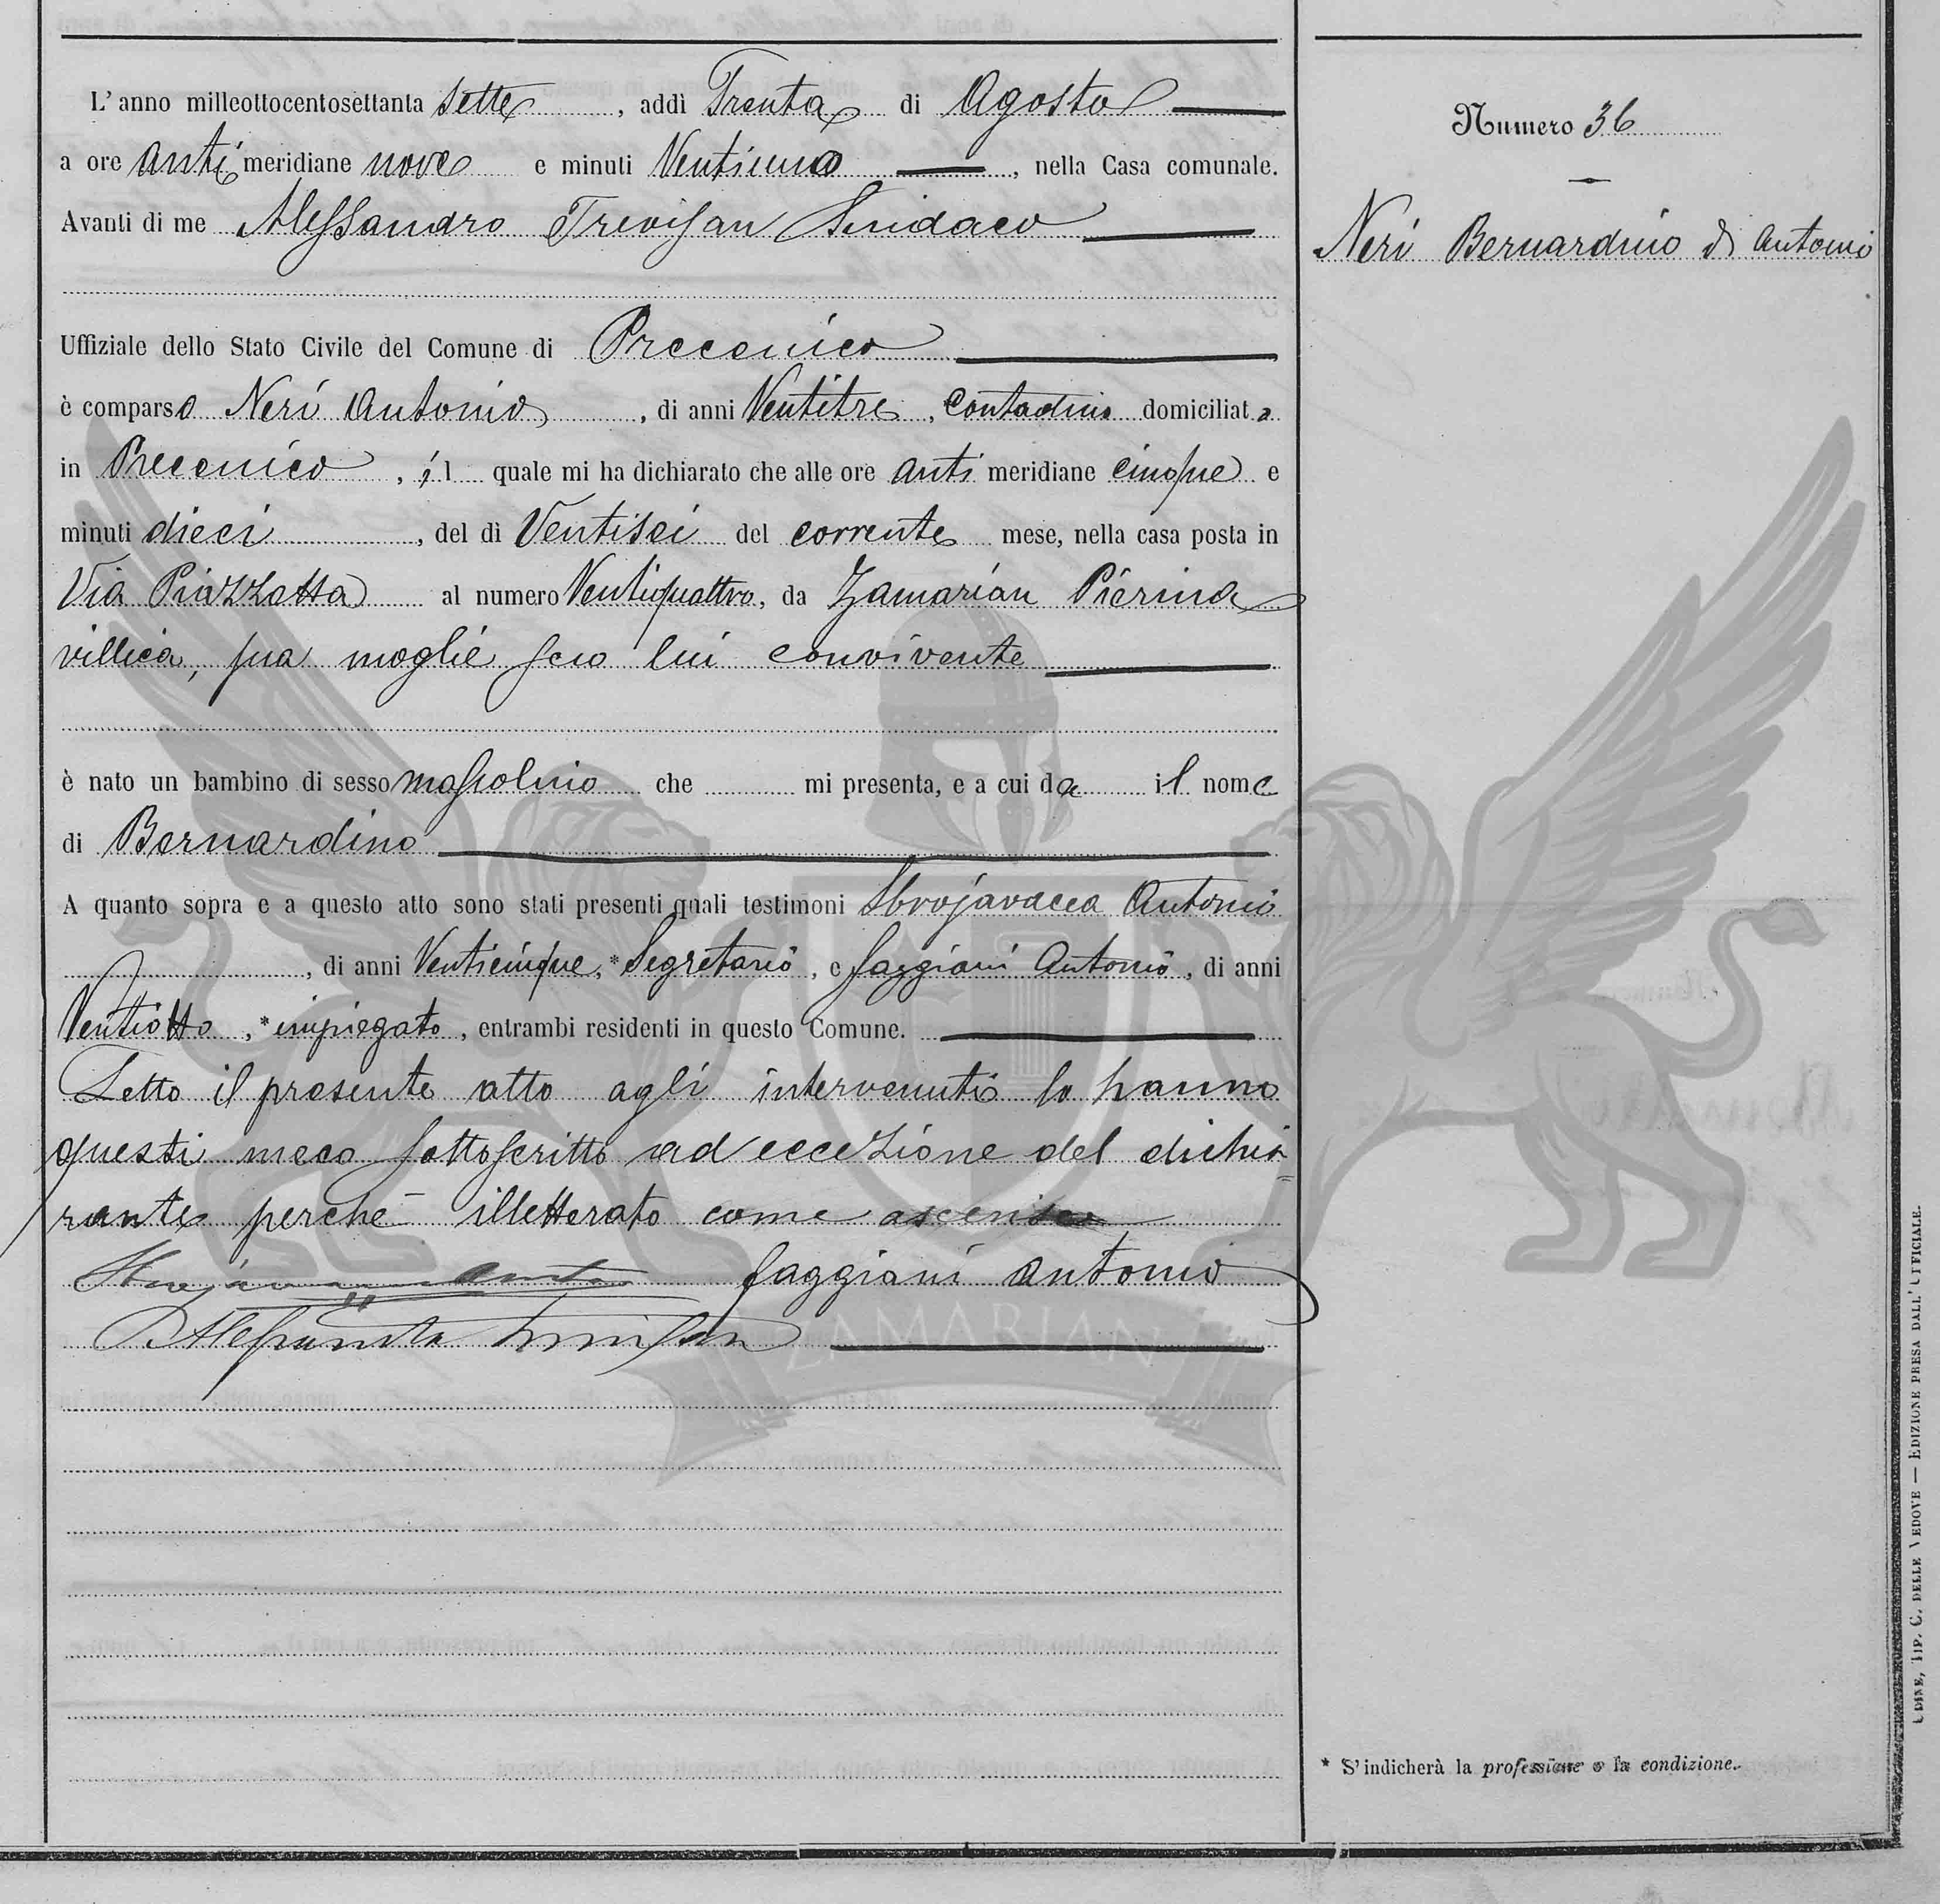 L'anno milleottocentosettanta sette, addì Trenta di Agosto
a ore anti meridiane nove e minuti Ventiuno, nella Casa comunale.
Avanti di me Alessandro Trevisan Sindaco
Uffiziale dello Stato Civile del Comune di Precenico
è comparso Neri Antonio, di anni Ventitre, contadino domiciliato
in Precenico, il quale mi ha dichiarato che alle ore anti meridiane cinque e
minuti dieci, del dì Ventisei del corrente mese, nella casa posta in
Via Piazzetta al numero Ventiquattro, da Zamarian Pierina
villica, sua moglie seco lui convivente
è nato un bambino di sesso mascolino che mi presenta, e a cui da il nome
di Bernardino
A quanto sopra e a questo atto sono stati presenti quali testimoni Sbrojavacca Antonio
, di anni Venticinque, *Segretario, e Faggiani Antonio, di anni
Ventiotto, *impiegato, entrambi residenti in questo Comune.
Letto il presente atto agli intervenuti lo hanno
questi meco sottoscritto ad eccezione del dichia=
rante perchè illetterato come asserisce
Faggiani Antonio
Numero 36
Neri Bernardino di Antonio
* S'indicherà la professione o la condizione.
UDINE, TIP. C. DELLE VEDOVE — EDIZIONE PRESA DALL' UFFICIALE.
ZAMARIAN